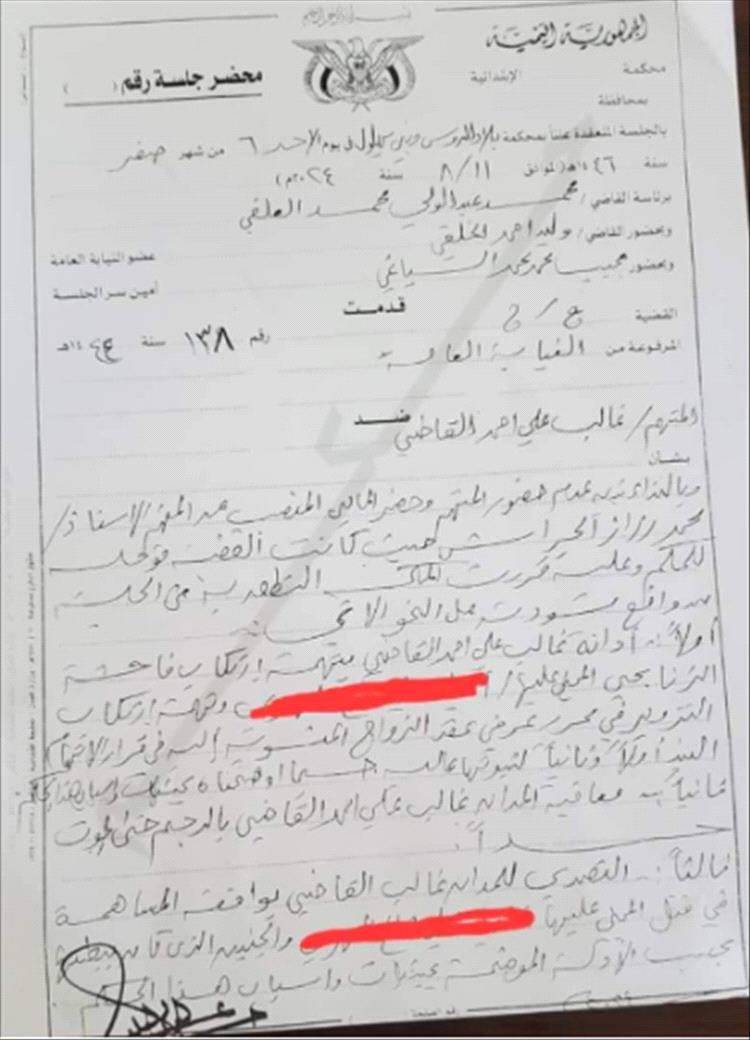 بسم الله الرحمن الرحيم
الجمهورية اليمنية
محكمة الإبتدائية
محضر جلسة رقم ( )
بمحافظة
بالجلسة المنعقدة علناً بمحكمة بلاد الروس وبني بهلول في يوم الاحد ٦ من شهر صفر
سنة ١٤٤٦هـ (الموافق ٨/١١ سنة ٢٠٢٤م)
برئاسة القاضي/ محمد عبدالولي محمد العلفي
وبحضور القاضي/ وليد احمد الخلقي عضو النيابة العامة
وبحضور مجيب محمد محمد السياغي أمين سر الجلسة
القضية ج/ج قدمت رقم ١٣٨ سنة ١٤٤٥هـ
المرفوعة من النيابة العامة
ضد
المتهم/ غالب علي احمد القاضي
بشأن
وبالنداء تبين عدم حضور المتهم وحضر المحامي المنصب عن المتهم/ الاستاذ/
محمد رزاز الحراسي حيث كانت القضية
للحكم وعليه قررت المحكمة النطق به في الجلسة
من واقع مسودته على النحو الاتي:
أولاً:- أدانة غالب علي احمد القاضي بتهمة إرتكاب فاحشة
الزنا بحق المجني عليها/ وتهمة إرتكاب
التزوير في محرر عرفي عقد الزواج المنسوبة إليه في قرار الاتهام
البند أولاً وثانياً لثبوتها عليه حسبما اوضحناه بحيثيات واسباب هذا الحكم
ثانياً:- معاقبة المدان غالب علي احمد القاضي بالرجم حتى الموت
حداً.
ثالثاً:- التصدي للمدان غالب القاضي بواقعة المساهمة
في قتل المجني عليها والجنين الذي كان ببطنها
بحسب الأدلة الموضحة بحيثيات واسباب هذا الحكم